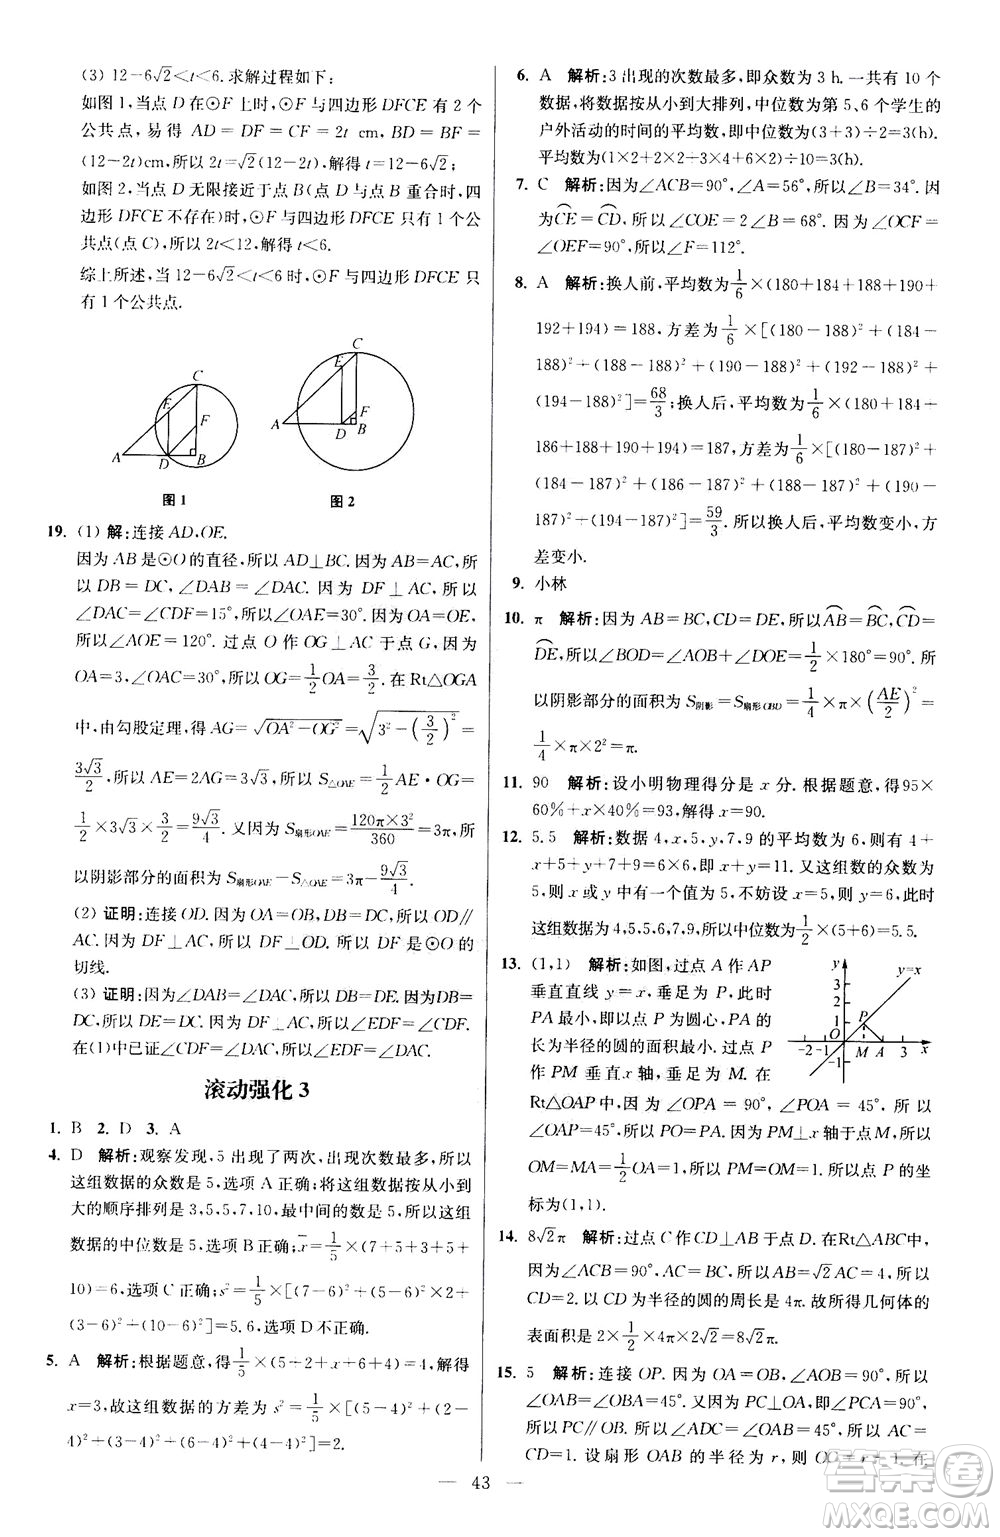 (3) 12－6√2＜t＜6. 求解过程如下：
如图 1，当点 D 在⊙F 上时，⊙F 与四边形 DFCE 有 2 个
公共点，易得 AD＝DF＝CF＝2t cm，BD＝BF＝
(12－2t)cm，所以 2t＝√2(12－2t)，解得 t＝12－6√2；
如图 2，当点 D 无限接近于点 B（点 D 与点 B 重合时，四
边形 DFCE 不存在）时，⊙F 与四边形 DFCE 只有 1 个公
共点（点 C），所以 2t＜12，解得 t＜6.
综上所述，当 12－6√2＜t＜6 时，⊙F 与四边形 DFCE 只
有 1 个公共点.
C
E
F
A
D
B
图 1
C
E
F
A
D
B
图 2
19. (1) 解：连接 AD，OE.
因为 AB 是⊙O 的直径，所以 AD⊥BC. 因为 AB＝AC，所
以 DB＝DC，∠DAB＝∠DAC. 因为 DF⊥AC，所以
∠DAC＝∠CDF＝15°，所以∠OAE＝30°. 因为 OA＝OE，
所以∠AOE＝120°. 过点 O 作 OG⊥AC 于点 G，因为
OA＝3，∠OAC＝30°，所以 OG＝1/2 OA＝3/2. 在 Rt△OGA
中，由勾股定理，得 AG＝√(OA²－OG²)＝√(3²－(3/2)²)＝
3√3/2，所以 AE＝2AG＝3√3，所以 S△OAE＝1/2 AE·OG＝
1/2×3√3×3/2＝9√3/4. 又因为 S扇形OAE＝120π×3²/360＝3π，所
以阴影部分的面积为 S扇形OAE－S△OAE＝3π－9√3/4.
(2) 证明：连接 OD. 因为 OA＝OB，DB＝DC，所以 OD∥
AC. 因为 DF⊥AC，所以 DF⊥OD. 所以 DF 是⊙O 的
切线.
(3) 证明：因为∠DAB＝∠DAC，所以 DB＝DE. 因为 DB＝
DC，所以 DE＝DC. 因为 DF⊥AC，所以∠EDF＝∠CDF.
在(1)中已证∠CDF＝∠DAC，所以∠EDF＝∠DAC.
滚动强化 3
1. B 2. D 3. A
4. D 解析：观察发现，5 出现了两次，出现次数最多，所以
这组数据的众数是 5，选项 A 正确；将这组数据按从小到
大的顺序排列是 3，5，5，7，10，最中间的数是 5，所以这组
数据的中位数是 5，选项 B 正确；x̄＝1/5×(7＋5＋3＋5＋
10)＝6，选项 C 正确；s²＝1/5×[(7－6)²＋(5－6)²×2＋
(3－6)²＋(10－6)²]＝5.6，选项 D 不正确.
5. A 解析：根据题意，得1/5×(3＋4＋x＋6＋5)＝4，解得
x＝3，故这组数据的方差为 s²＝1/5×[(5－4)²＋(3－4)²＋(3－
4)²＋(4－4)²＋(6－4)²]＝2.
6. A 解析：3 出现的次数最多，即众数为 3 h. 一共有 10 个
数据，将数据按从小到大排列，中位数为第 5、6 个学生的
户外活动的时间的平均数，即中位数为(3＋3)÷2＝3(h).
平均数为(1×2＋2×2＋3×4＋4×2)÷10＝3(h).
7. C 解析：因为∠ACB＝90°，∠A＝56°，所以∠B＝34°. 因
为CE＝CD，所以∠COE＝2∠B＝68°. 因为∠OCF＝
∠OEF＝90°，所以∠F＝112°.
8. A 解析：换人前，平均数为1/6×(180＋184＋188＋190＋
192＋194)＝188，方差为1/6×[(180－188)²＋(184－
188)²＋(188－188)²＋(190－188)²＋(192－188)²＋
(194－188)²]＝68/3；换人后，平均数为1/6×(180＋184＋
186＋188＋190＋194)＝187，方差为1/6×[(180－187)²＋
(184－187)²＋(188－187)²＋(190－187)²＋(186－
187)²＋(194－187)²]＝59/3. 所以换人后，平均数变小，方
差变小.
9. 小林
10. π 解析：因为 AB＝BC，CD＝DE，所以AB＝BC，CD＝
DE，所以∠BOD＝∠AOB＋∠DOE＝1/2×180°＝90°. 所
以阴影部分的面积为 S阴影＝S扇形OBD＝1/4×π×(AE/2)²＝
1/4×π×2²＝π.
11. 90 解析：设小明物理得分是 x 分. 根据题意，得95×
60％＋x×40％＝93，解得 x＝90.
12. 5.5 解析：数据 4，x，5，y，7，9 的平均数为 6，则有 4＋
x＋5＋y＋7＋9＝6×6，即 x＋y＝11. 又这组数的众数为
5，则 x 或 y 中有一个值为 5，不妨设 x＝5，y＝6，此时
这组数据为 4，5，5，6，7，9，所以中位数为1/2×(5＋6)＝5.5.
13. (1，1) 解析：如图，过点 A 作 AP
垂直直线 y＝x，垂足为 P，此时
PA 最小，即以点 P 为圆心，PA 的
长为半径的圆的面积最小. 过点
P 作 PM 垂直 x 轴，垂足为 M. 在
Rt△OAP 中，∠OPA＝90°，∠POA＝45°，所以
∠OAP＝45°，所以 PO＝PA. 因为 PM⊥x 轴于点 M，所以
OM＝MA＝1/2 OA＝1，所以 PM＝OM＝1. 所以点 P 的坐
标为(1，1).
y
y=x
3
2
1
P
O
-2 -1 M A 3 x
-1
14. 8√2π 解析：如图，过点 C 作 CD⊥AB 于点 D. 在Rt△ABC 中，
因为∠ACB＝90°，AC＝BC，所以 AB＝√2AC＝4，所以
CD＝2. 以 CD 为半径的圆的周长是 4π. 故所得几何体的
表面积是 2×1/2×4π×2√2＝8√2π.
15. 5 解析：连接 OP. 因为 OA＝OB，∠AOB＝90°，所以
∠OAB＝∠OBA＝45°. 又因为 PC⊥OA，即∠PCA＝90°，
所以 PC∥OB. 所以∠ADC＝∠OAB＝45°，所以 AC＝
CD＝1. 设扇形 OAB 的半径为 r，所以 OC＝r－1. 在
43
答案圈
MXQE.COM